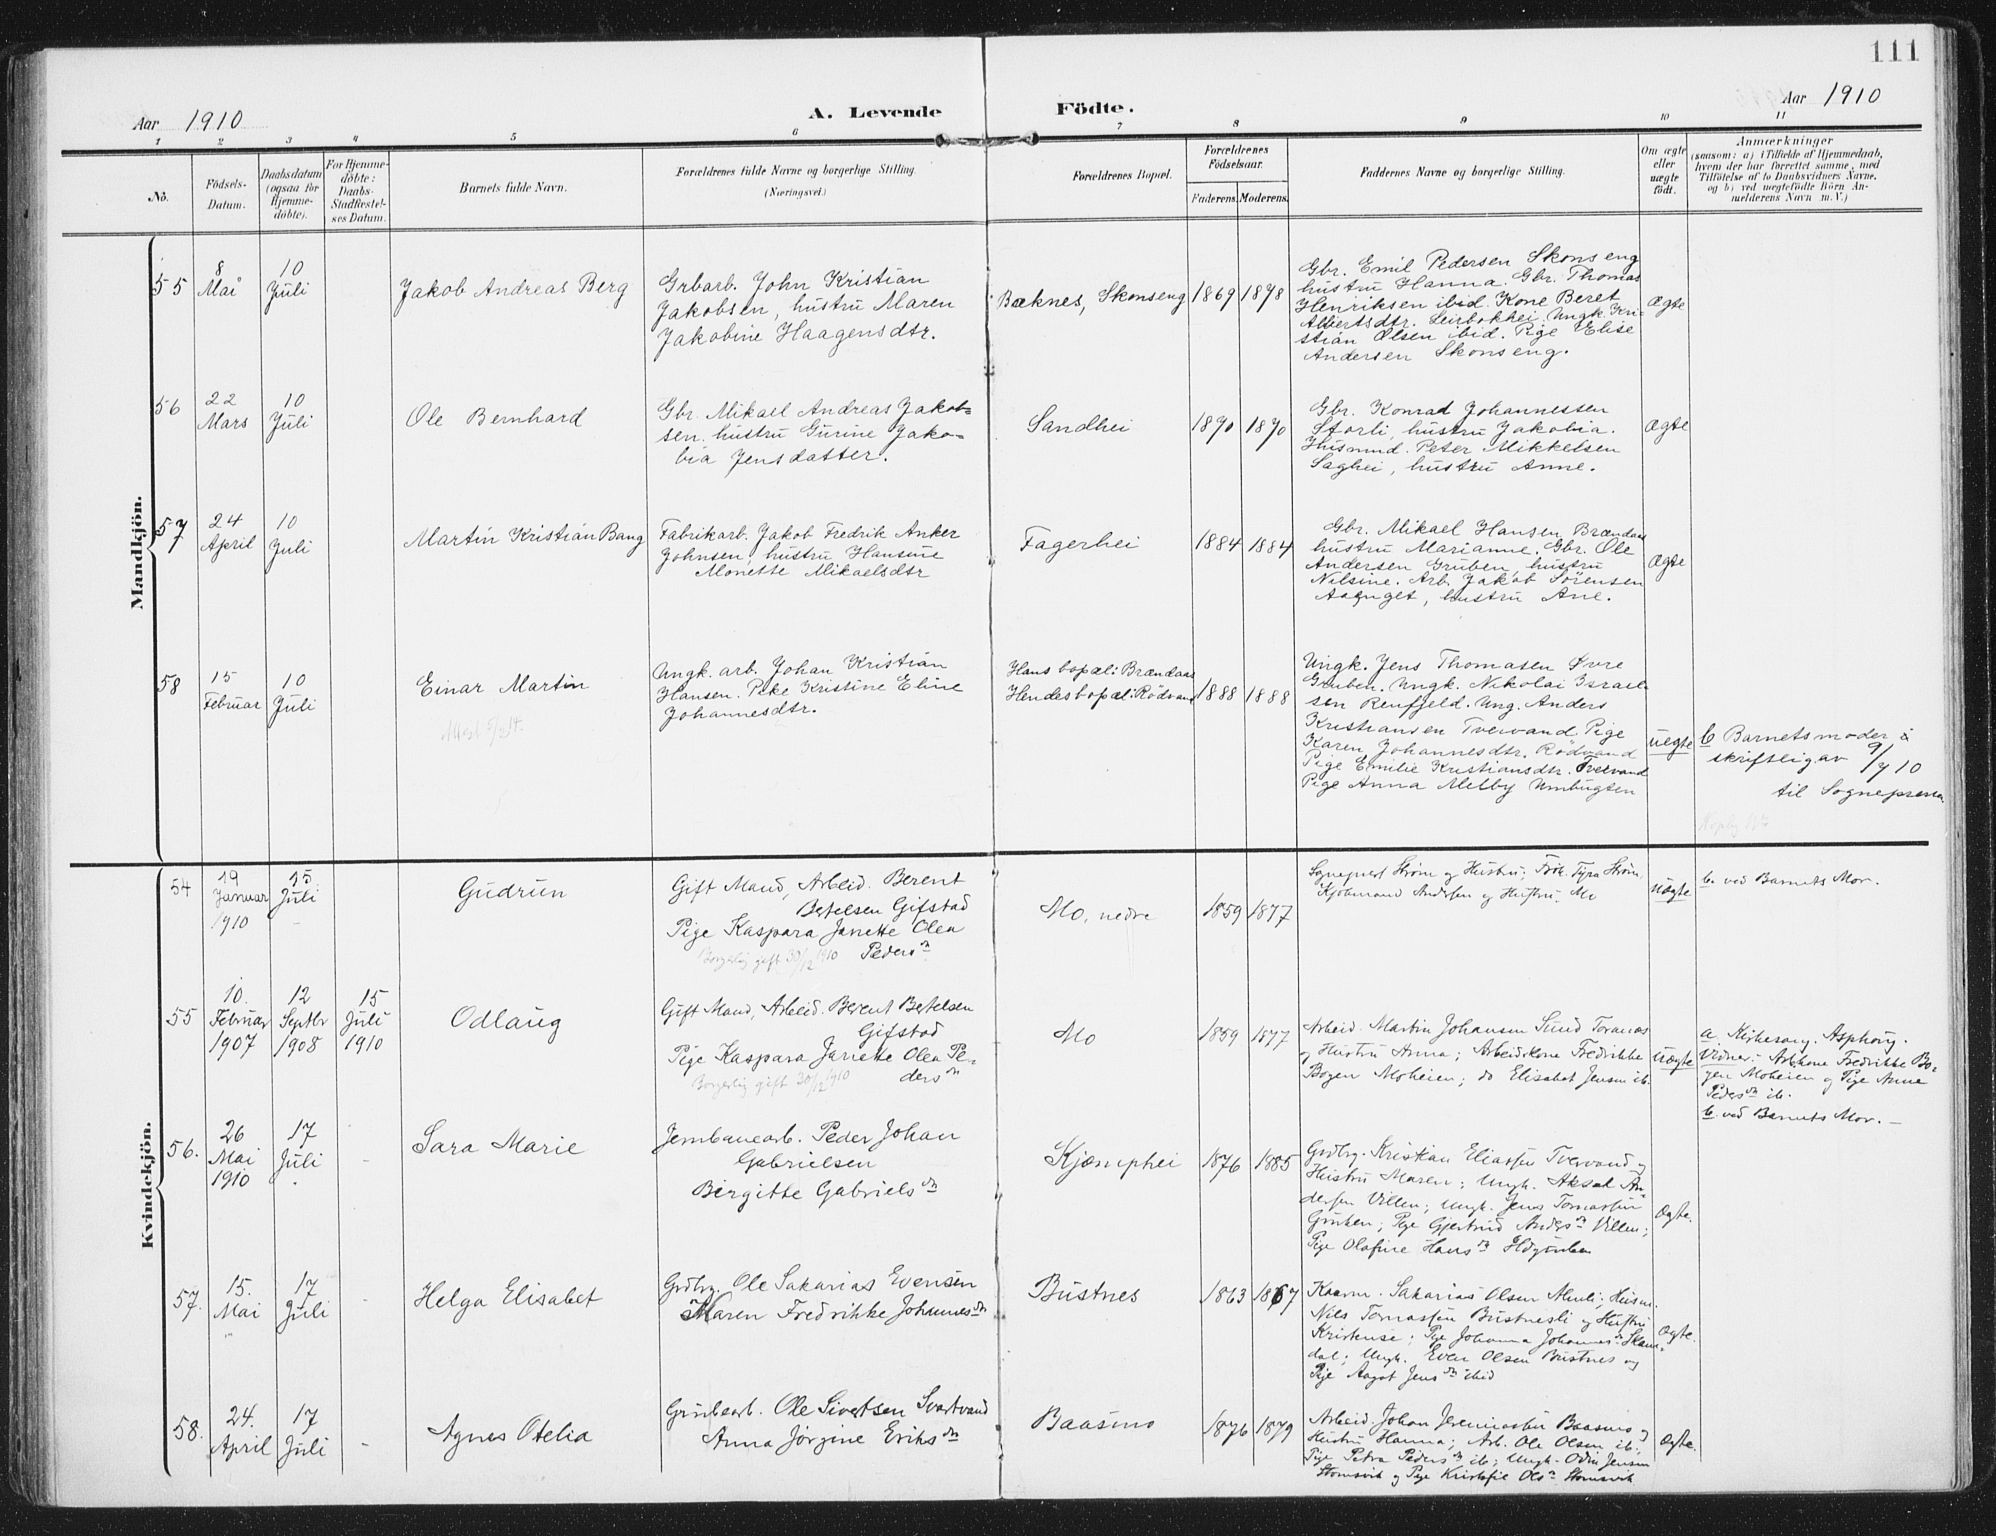 111
Aar 1910
A. Levende Födte.
Aar 1910
1 2 3 4 5 6 7 8 9 10 11
No.
Födsels-
Datum.
Daabsdatum
(ogsaa for
Hjemme-
döbte).
For Hjemme-
döbte:
Daabs-
Stadfæstel-
ses Datum.
Barnets fulde Navn.
Forældrenes fulde Navne og borgerlige Stilling.
(Næringsvei.)
Forældrenes Bopæl.
Forældrenes
Födselsaar.
Faderens. Moderens.
Faddernes Navne og borgerlige Stilling.
Om ægte
eller
uægte
födt.
Anmærkninger
(saasom: a) i Tilfælde af Hjemmedaab,
hvem der har forrettet samme, med
Tilföielse af to Daabsvidners Navne,
og b) ved uægtefödte Börn An-
melderens Navn m. V.)
Mandkjön.
55
8
Mai
10
Juli
Jakob Andreas Berg
Grbarb. John Kristian
Jakobsen, hustru Maren
Jakobine Haagensdtr.
Bæknes, Skonseng
1869 1878
Gbr. Emil Pedersen Skonseng
hustru Hanna. Gbr. Thomas
Henriksen ibid. Kone Beret
Albertsdtr. Leirbokhei Ungk. Kri-
stian Olsen ibid. Pige Elise
Andersen Skonseng.
Ægte
56
22
Mars
10
Juli
Ole Bernhard
Gbr. Mikael Andreas Jakob-
sen. hustru Gurine Jako-
bia Jensdatter.
Sandhei
1870 1870
Gbr. Konrad Johannessen
Storli, hustru Jakobia.
Husmnd. Peter Mikkelsen
Saghei, hustru Anne.
Ægte
57
24
April
10
Juli
Martin Kristian Bang
Fabrikarb. Jakob Fredrik Anker
Johnsen, hustru Hansine
Monette Mikaelsdtr
Fagerhei
1884 1884
Gbr. Mikael Hansen Brændaas
hustru Marianne. Gbr. Ole
Andersen Gruben, hustru
Nilsine. Arb. Jakob Sörensen
hustru Ane.
Ægte
58
15
Februar
10
Juli
Einar Martin
Ungk. arb. Johan Kristian
Hansen. Pike Kristine Eline
Johannesdtr.
Hans bopæl: Brændaas
Hendes bopæl: Rödvand
1888 1888
Ungk. Jens Thomasen Övre
Gruben. Ungk. Nikolai Israel-
sen Renfjeld. Ung. Anders
Kristiansen Tvervand Pige
Karen Johannesdtr. Rödvand
Pige Emilie Kristiansdtr. Tvervand
Pige Anna Melby Umbugten
uegte
b Barnets moder i
skriftlig av 9/7 10
til Sognepresten
Kvindekjön.
54
19
Januar
1910
15
Juli
Gudrun
Gift Mand, Arbeid. Berent
Betelsen Gifstad
Pige Kaspara Janette Olea
Pedersdtr
Borgerlig gift 30/12 1910
Mo, nedre
1859 1877
Sogneprest Ström og Hustru; Frk. Tyra Ström
Kjöbmand Andersen og Hustru. Mo
uægte
b. ved Barnets Mor.
55
10.
Februar
1907
12
Septbr
1908
15
Juli
1910
Odlaug
Gift Mand, Arbeid. Berent Betelsen
Gifstad
Pige Kaspara Janette Olea Pe-
dersdtr
Borgerlig gift 30/12 1910
Mo
1859 1877
Arbeid. Martin Johansen Sund Toranes
og Hustru Anna; Arbeidskone Fredrikke
Bogen Moheien; do Elisabet Jensen ib.
uægte
a. Kirkesang. Asphoug.
Vidner: Arb.kone Fredrikke Bo-
gen Moheien og Pige Anne
Pedersdtr ib.
b. ved Barnets Mor.
56.
26
Mai
1910
17
Juli
Sara Marie
Jernbanearb. Peder Johan
Gabrielsen
Birgitte Gabrielsdtr
Kjæmphei
1876 1885
Grdbrg. Kristian Eliassen Tvervand og
Hustru Maren; Ungk. Aksel An-
dersen Villen; Ungk. Jens Tomassen
Gruben; Pige Gjertrud Andersdtr Villen;
Pige Olafine Hansdtr
Ægte.
57.
15.
Mai
17
Juli
Helga Elisabet
Grdbrg. Ole Sakarias Evensen
Maren Fredrikke Johannesdtr
Bustnes
1863 1867
Kaarm. Sakarias Olsen Alnli; Husm.
Nils Tomassen Bustnesli og Hustru
Kristense; Pige Johanna Johannesdtr
dal; Ungk. Even Olsen Bustnes og
Pige Aagot Jensdtr ibid
Ægte.
58.
24.
April
17
Juli
Agnes Otelia
Grubearb. Ole Sivertsen Svartvand
Anna Jørgine Eriksdtr
Baasmo
1876 1879
Arbeid. Johan Jeremiassen Baasmo og
Hustru Hanna; Arb. Ole Olsen ib;
Pige Petra Pedersdtr ib; Ungk. Odin Jensen
Stornsvik og Pige Olsdtr Stornsvik
Ægte.